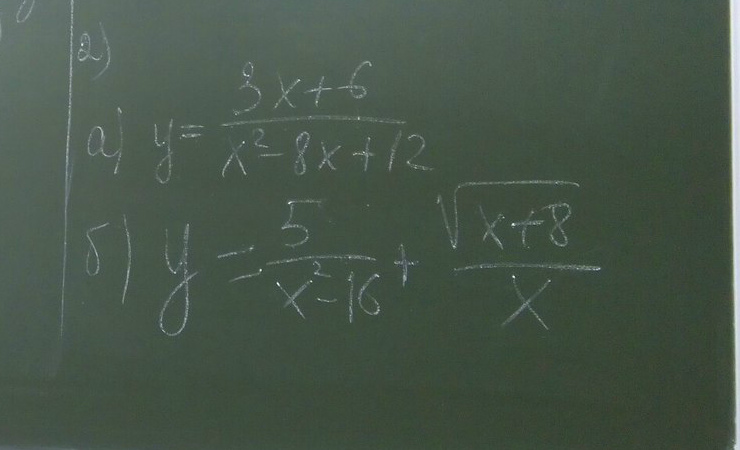 2)
а) y = (3x+6)/(x²-8x+12)
б) y = 5/(x²-16) + √(x+8)/x